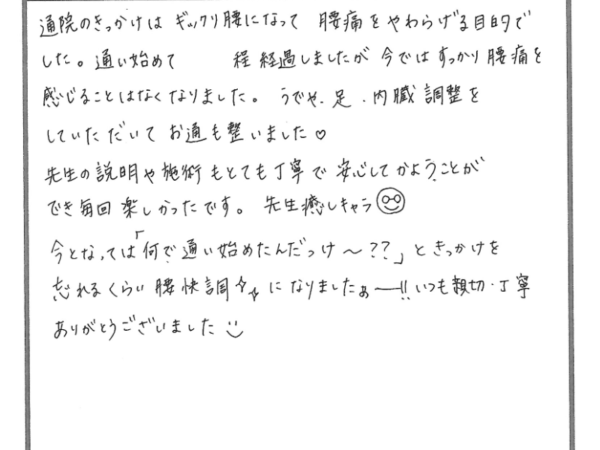 通院のきっかけは ギックリ腰になって 腰痛をやわらげる目的で
した。通い始めて 程経過しましたが今ではすっかり腰痛を
感じることはなくなりました。うでや、足、内臓調整を
していただいて お通も整いました♡
先生の説明や施術もとても丁寧で 安心してかようことが
でき毎回楽しかったです。先生癒しキャラ☺
今となっては「何で通い始めたんだっけ〜??」ときっかけを
忘れるくらい腰快調☆☆になりましたぁ―!!いつも親切・丁寧
ありがとうございました☺